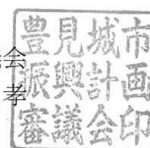 会
孝
豊見城市
振興計画
審議会印